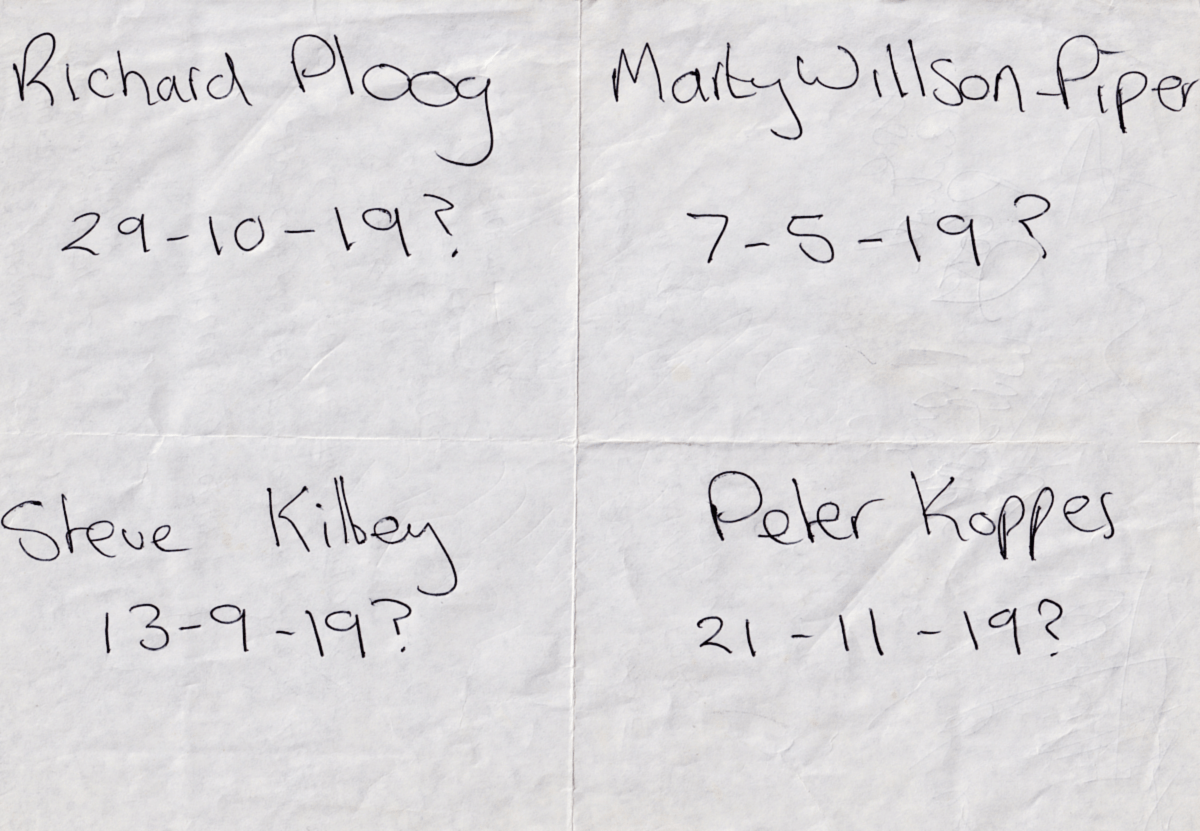 Richard Ploog
29-10-19?
Marty Willson-Piper
7-5-19?
Steve Kilbey
13-9-19?
Peter Koppes
21-11-19?